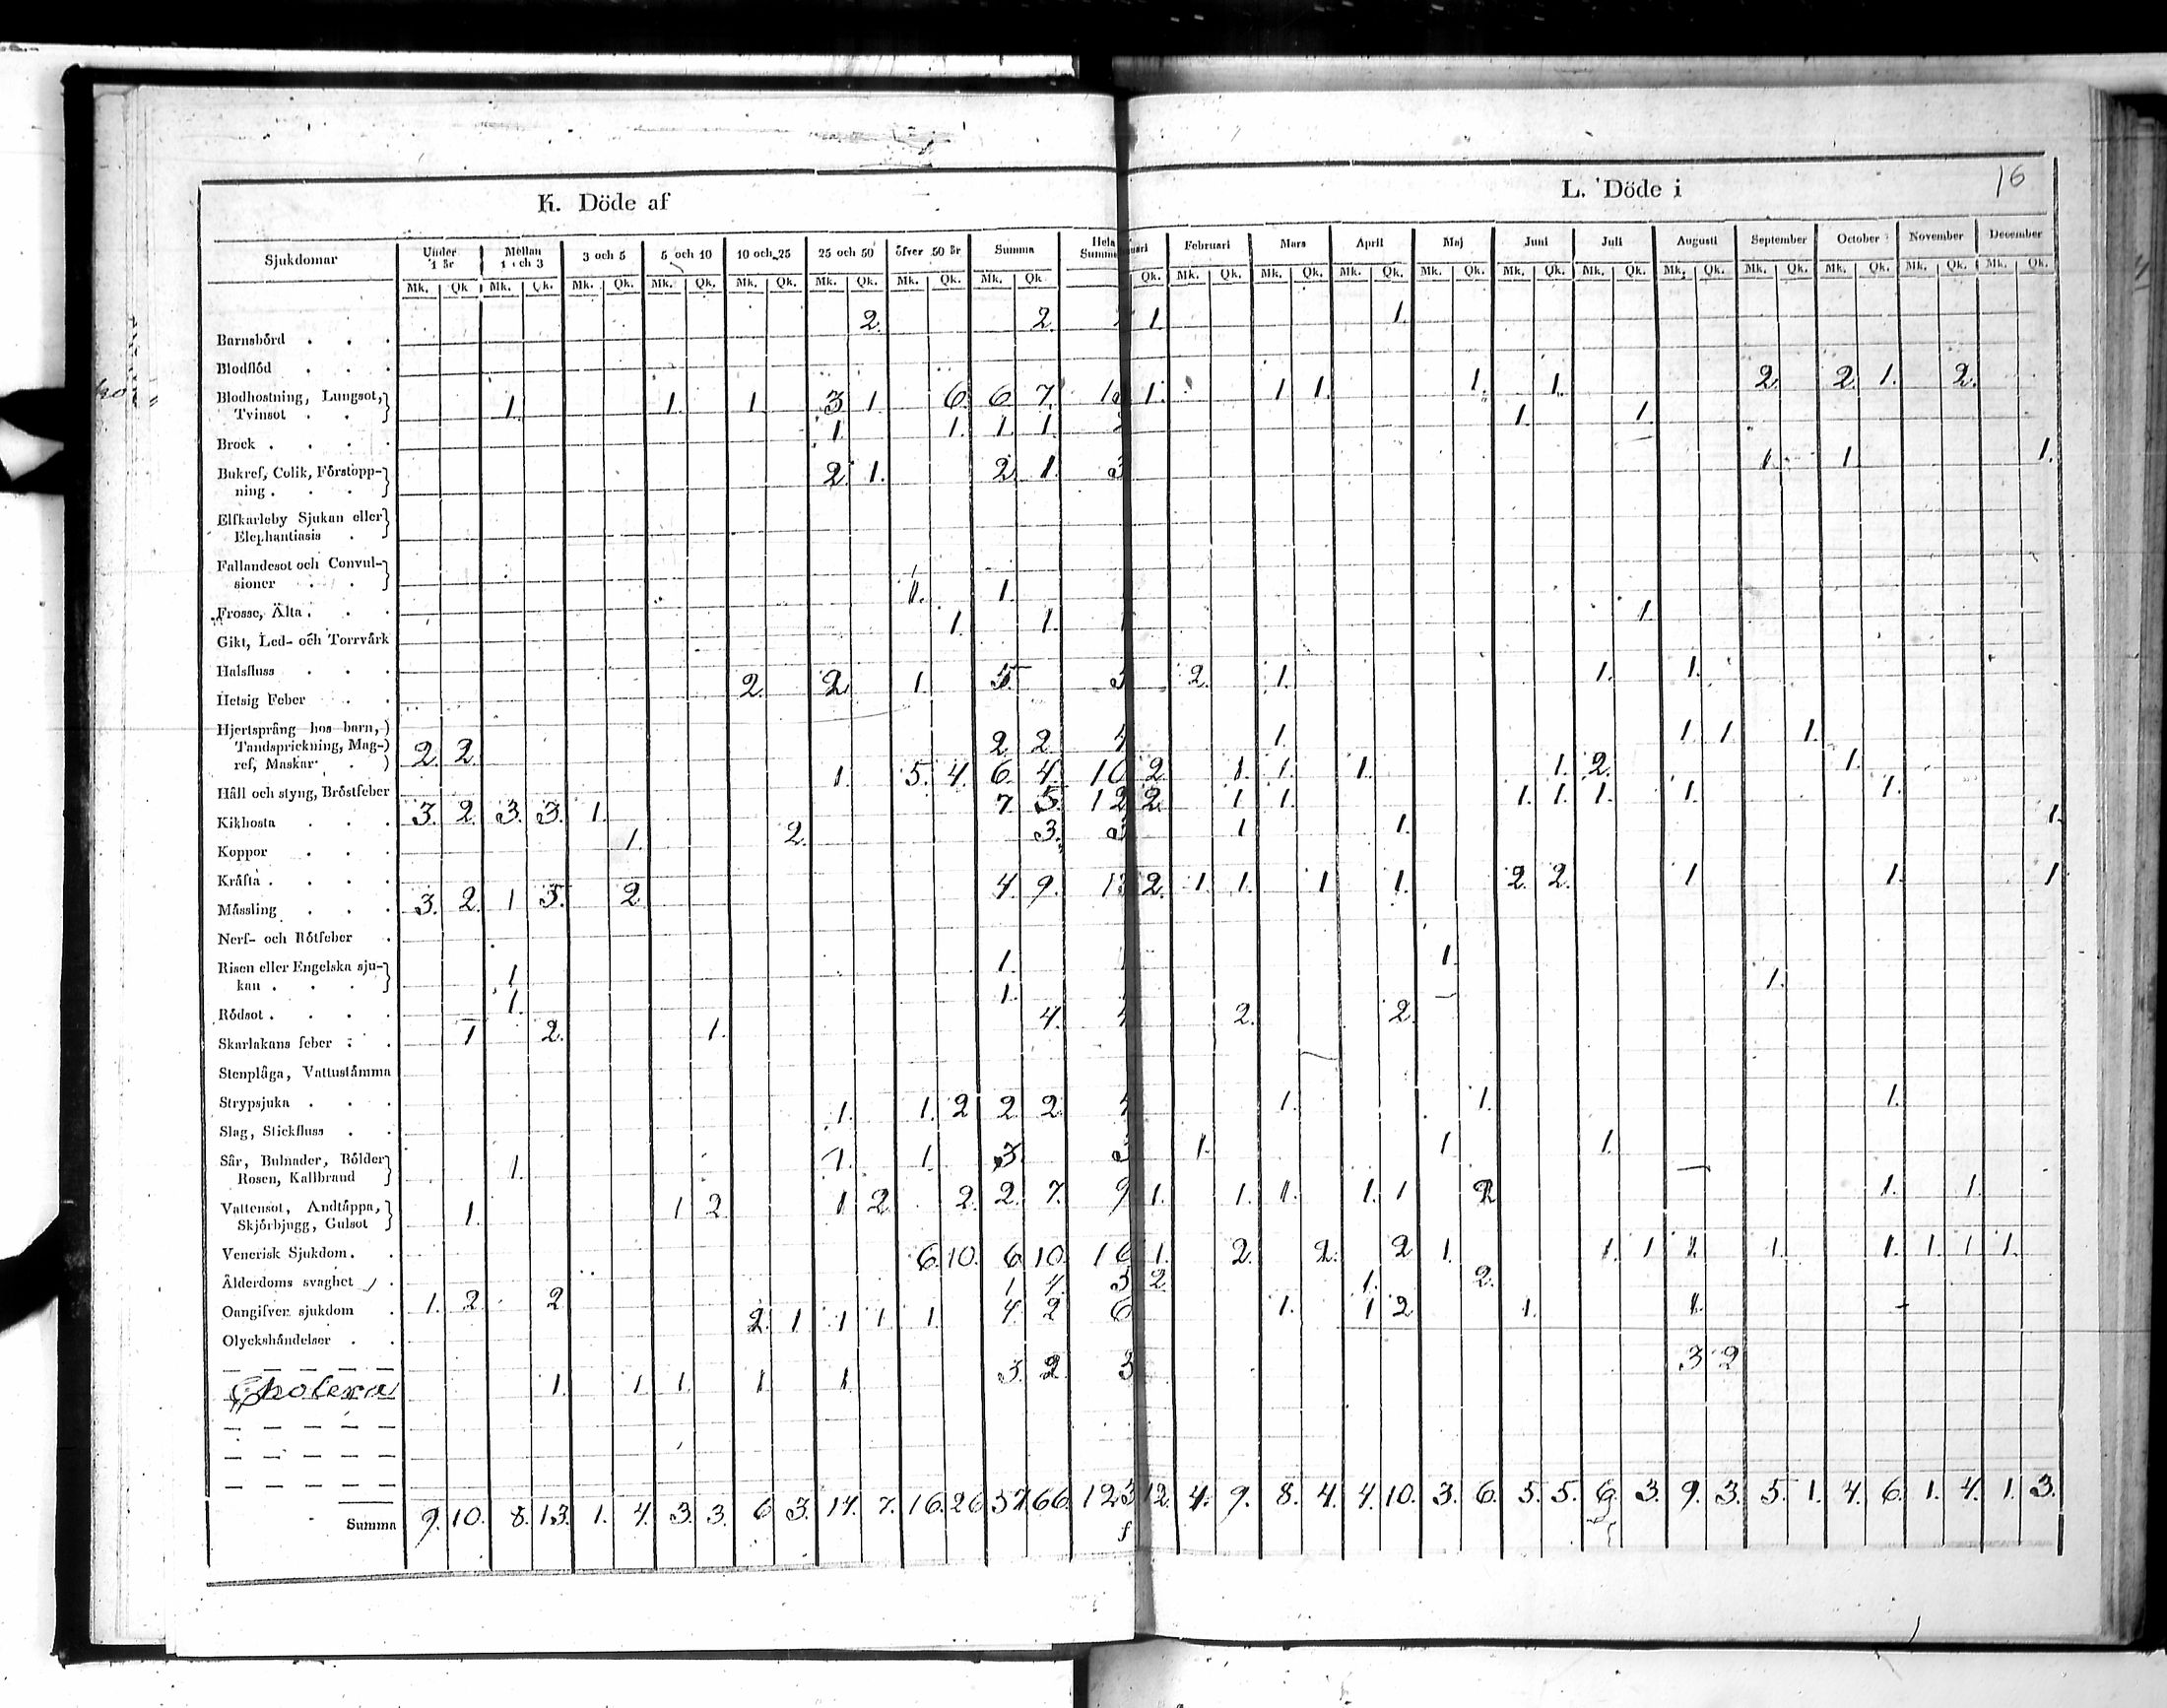 16
K. Döde af
L. Döde i
Sjukdomar
Under 1 år | Mellan 1 och 3 | 3 och 5 | 5 och 10 | 10 och 25 | 25 och 50 | öfver 50 år | Summa | Hela Summ | uari | Februari | Mars | April | Maj | Juni | Juli | Augusti | September | October | November | December
Mk. Qk. Mk. Qk. Mk. Qk. Mk. Qk. Mk. Qk. Mk. Qk. Mk. Qk. Mk. Qk. Qk. Mk. Qk. Mk. Qk. Mk. Qk. Mk. Qk. Mk. Qk. Mk. Qk. Mk. Qk. Mk. Qk. Mk. Qk. Mk. Qk. Mk. Qk.
Barnsbörd . . . 2. 2. 1. 1.
Blodflöd . . .
Blodhostning, Lungsot,
Tvinsot . . 1. 1. 1. 3 1. 6. 6 7. 1. 1 1. 1. 1. 2. 2. 1. 2.
Brock . . . . 1. 1. 1. 1. 1. 1.
Bukref, Colik, Förstopp-
ning . . . 2. 1. 2. 1. 3 1. 1. 1.
Elfkarleby Sjukan eller
Elephantiasis .
Fallandesot och Convul-
sioner . .
Frossa, Älta . . . 1. 1.
Gikt, Led- och Torrvärk 1. 1. 1.
Halsfluss . . .
Hetsig Feber . . 2. 2. 1. 5. 2. 1. 1. 1.
Hjertsprång hos barn,
Tandsprickning, Mag-
ref, Maskar . 2. 2. 2. 2. 4 1. 1. 1. 1.
Håll och styng, Bröstfeber 1. 5. 4. 6. 4. 10 2. 1. 1. 1. 1. 2. 1.
Kikhosta . . . 3. 2. 3. 3. 1. 7. 5. 12 2. 1 1. 1. 1. 1. 1. 1.
Koppor . . . 1. 2. 3. 3 1 1. 1.
Kräfta . . . .
Mässling . . . 3. 2. 1 5. 2. 4. 9. 13 2. 1. 1. 1 1. 2. 2. 1 1. 1
Nerf- och Rötfeber .
Risen eller Engelska sju-
kan . . . 1. 1. 1.
Rödsot . . . . 1. 1. 1.
Skarlakans feber . . 1 2. 1. 4. 4 2. 2.
Stenplåga, Vattustämma
Strypsjuka . . .
Slag, Stickfluss . . 1. 1. 2 2. 2. 4 1. 1. 1.
Sår, Bulnader, Bölder
Rosen, Kallbrand 1. 1. 1. 3. 3 1. 1. 1.
Vattensot, Andtäppa,
Skjörbjugg, Gulsot 1. 1 2. 1 2. 2. 2. 7. 9 1. 1. 1. 1. 1 2 1. 1.
Venerisk Sjukdom . .
Ålderdoms svaghet . 6. 10. 6. 10. 16 1. 2. 2. 2 1. 1. 1 1. 1. 1. 1. 1 1.
Oangifven sjukdom . 1. 2. 2 1. 2. 1. 2.
Olyckshändelser . . 2. 1 1 1. 1. 4. 2 6 1. 1 2 1. 1.
Cholera 1. 1 1. 1. 1. 3. 2. 3 2
Summa 9. 10. 8. 13. 1. 4. 3. 3. 6 3. 14. 7. 16. 26 57 66. 123 12. 4. 9. 8. 4. 4. 10. 3. 6. 5. 5. 6. 3. 9. 3. 5. 1. 4. 6. 1. 4. 1. 3.